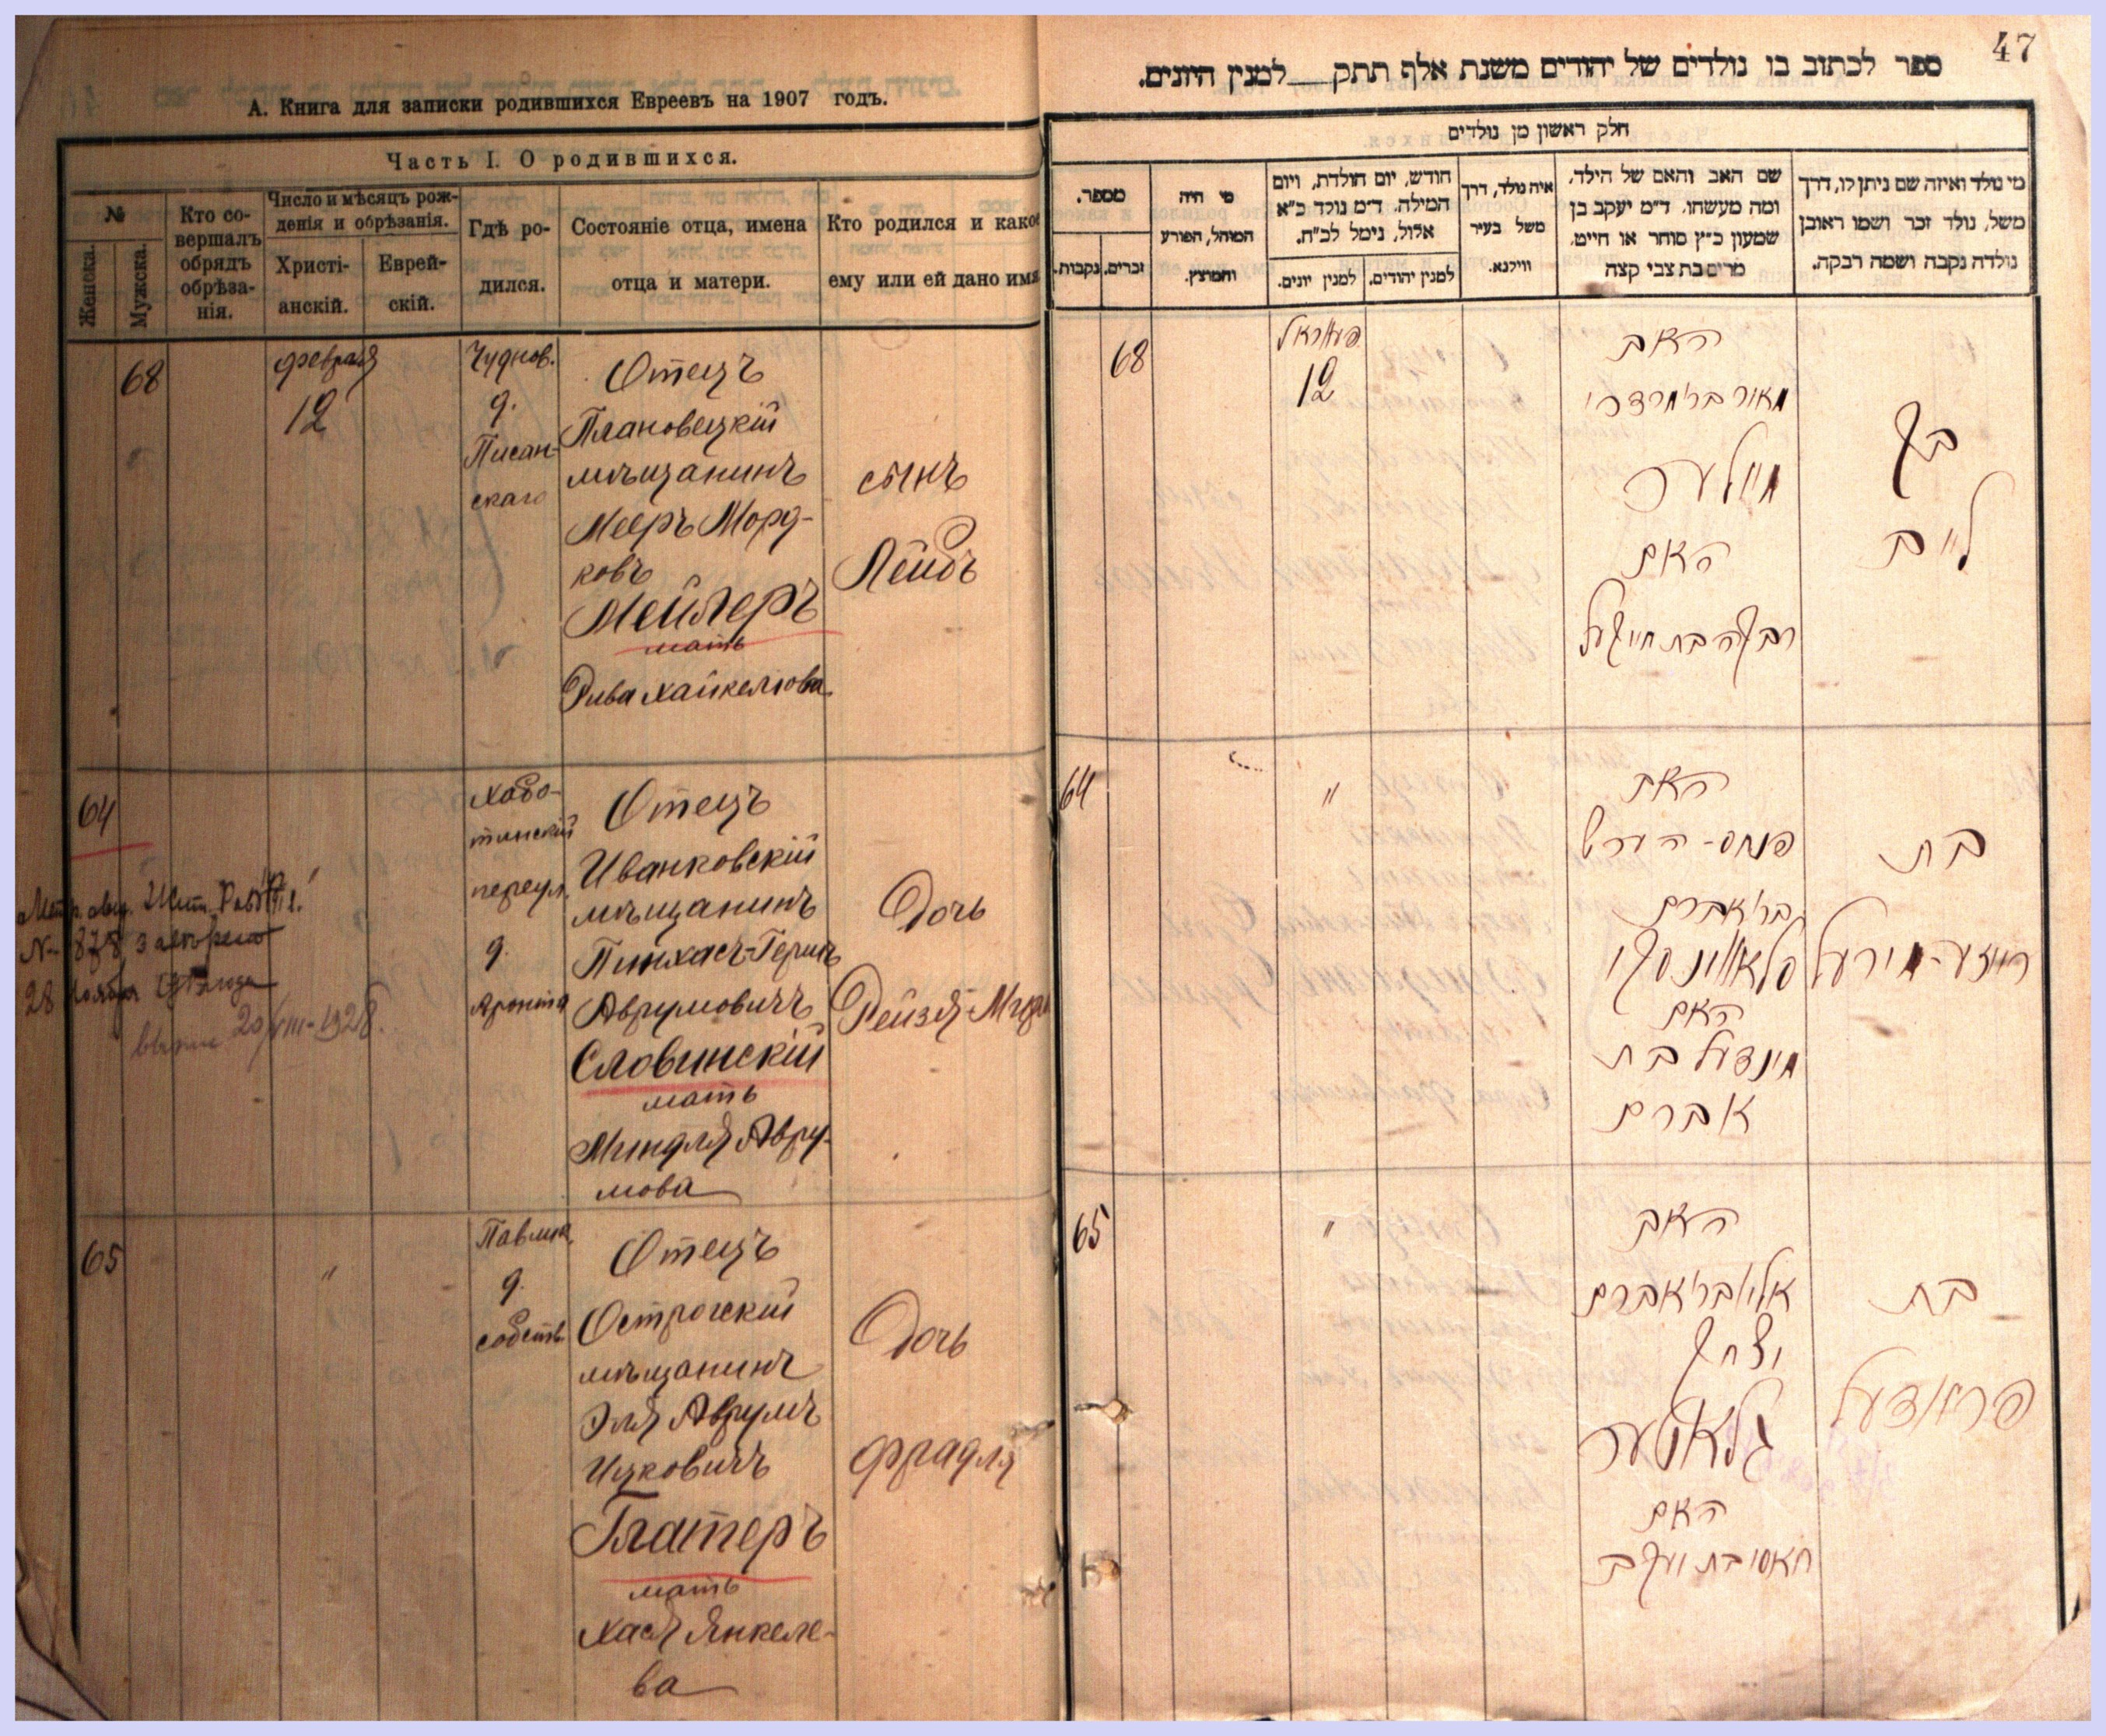 А. Книга для записки родившихся Евреевъ на 1907 годъ.
Часть I. О родившихся.
№
Женска.
Мужска.
Кто со-
вершалъ
обрядъ
обрѣза-
нія.
Число и мѣсяцъ рож-
денія и обрѣзанія.
Христі-
анскій.
Еврей-
скій.
Гдѣ ро-
дился.
Состояніе отца, имена
отца и матери.
Кто родился и како
ему или ей дано имя
68
февраля
12
Чуднов.
д.
Писан-
скаго
Отецъ
Плановецкій
мѣщанинъ
Мееръ Морд-
ковъ
Мейлеръ
мать
Рива Хайкелюва
сынъ
Лейбъ
64
№ 878
28 ноября
20/VIII-1928.
Хабо-
тинскій
переул.
д.
Отецъ
Иванковскій
мѣщанинъ
Пинхасъ-Гершъ
Аврумовичъ
Словинскій
мать
Миндля Авру-
мова
Дочь
Рейзя-Мир
65
"
д.
собств.
Отецъ
Острогскій
мѣщанинъ
Эля Аврумъ
Ицковичъ
Глатеръ
мать
Хася Янкеле-
ва
Дочь
Фрадля
47
ספר לכתוב בו נולדים של יהודים משנת אלף תתק___למנין היונים.
חלק ראשון מן נולדים
מספר.
נקבות.
זכרים.
מי היה
המוהל, הפורע
והמוצץ.
חודש, יום הולדת, ויום
המילה. ד״מ נולד כ״א
אלול, נימל לכ״ח.
למנין יונים.
למנין יהודים.
איה נולד, דרך
משל בעיר
ווילנא.
שם האב והאם של הילד,
ומה מעשהו. ד״מ יעקב בן
שמעון כ״ץ סוחר או חייט,
מרים בת צבי קצה
מי נולד ואיזה שם ניתן לו, דרך
משל, נולד זכר ושמו ראובן
נולדה נקבה ושמה רבקה.
68
פעוראל
12
האב
מאור בר׳ מרדכי
מיילער
האם
רבקה בת חייקעל
בן
לייב
64
"
האב
פנחס-הערש
בר׳ אברם
סלאווינסקי
האם
מינדעל בת
אברם
בת
רייזע-מירעל
65
"
האב
אלי׳ בר׳ אברם
יצחק
גלאטער
האם
חאסי בת יעקב
בת
פראדעל